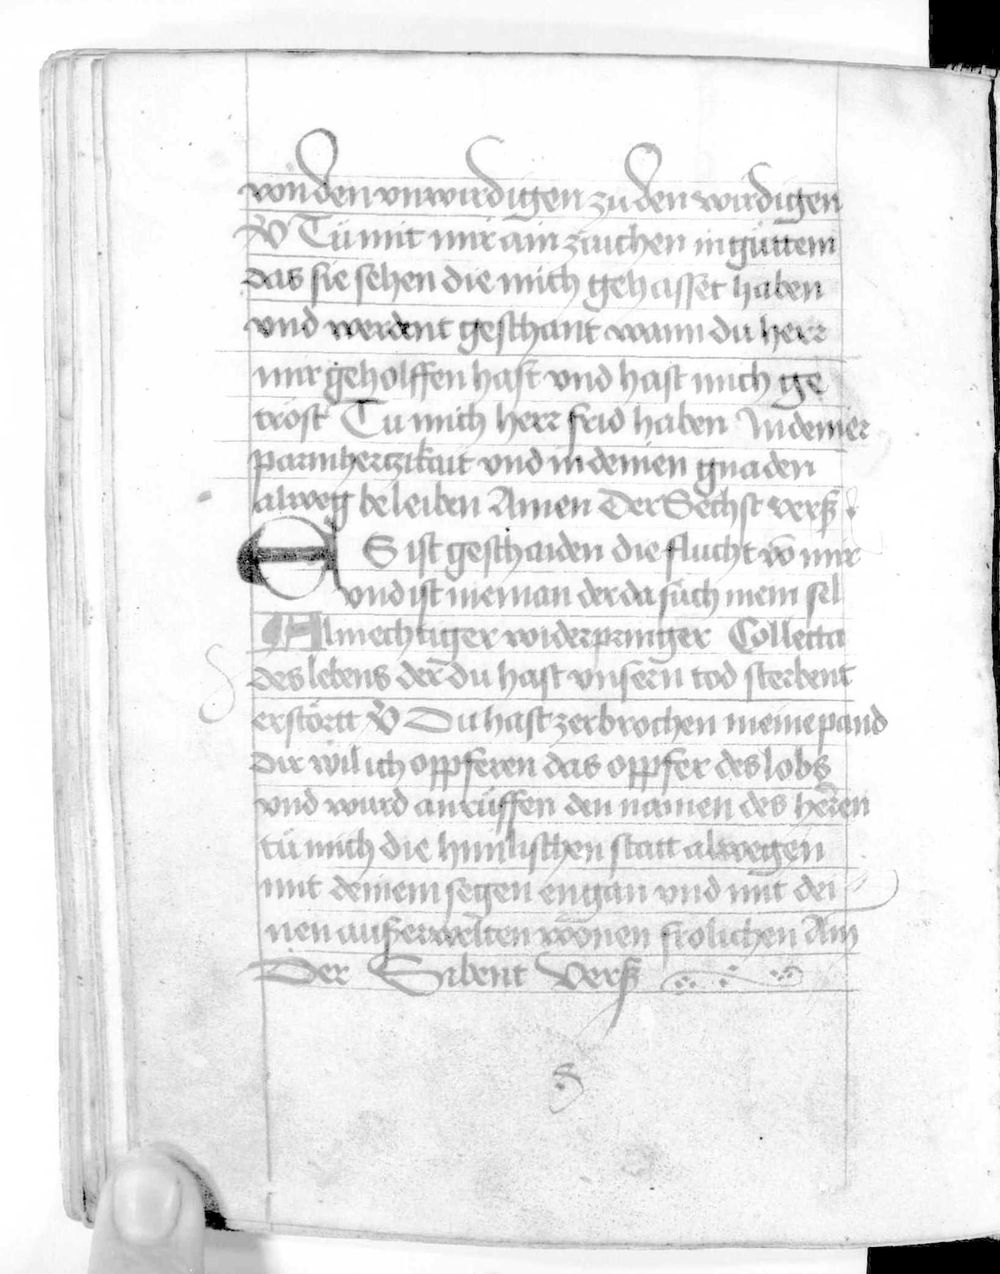 von den vnwirdigen zu den wirdigen
V̄ Tü mit mir ain zaichen in güttem
das sie sehen die mich gehasset haben
vnd werdent geschant wann du herr
mir geholffen hast vnd hast mich ge
tröst Tu mich herr frid haben In deiner
parmhertzikait vnd in deinen gnaden
alweg beleiben Amen Der Sechst verß
ES ist geschaiden die flucht vō mir
vnd ist nieman der da such mein sel
Almechtiger widerpringer Collecta
des lebens der du hast vnsern tod sterbent
erstörtt V̄ Du hast zerbrochen meine pand
Dir wil ich oppferen das oppfer des lobs
vnd wurd anrüffen den namen des herren
tü mich die himlischen statt alwegen
mit deinem segen engan vnd mit dei
nen außerwelten wonen frolichen Am
Der Sibent Verß